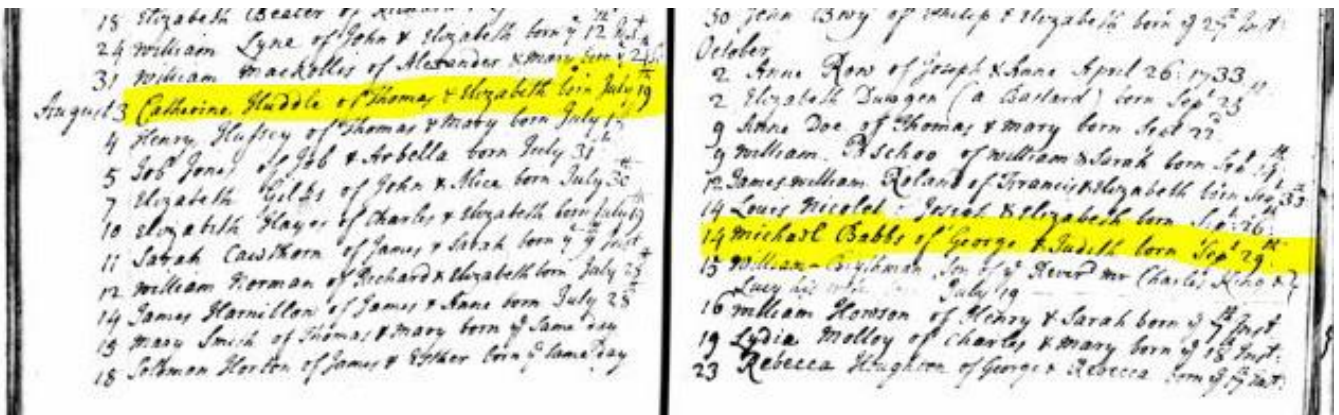 18 Elizabeth Beater of Richard
24 William Lyne of John & Elizabeth born ye 12
31 William Mackelles of Alexander & Mary born ye
August 3 Catherine Huddle of Thomas & Elizabeth born July 19
4 Henry Hussey of Thomas & Mary born July
5 Job Jones of Job & Arbella born July 31
7 Elizabeth Gilks of John & Alice born July 30
10 Elizabeth Hayes of Charles & Elizabeth born July
11 Sarah Cawthorn of James & Sarah born ye 9 Inst
12 William Horman of Richard & Elizabeth born July 25
14 James Hamillon of James & Anne born July 28
15 Mary Smith of Thomas & Mary born ye Same day
18 Soloman Horton of James & Esther born ye Same day
30 John Bwy of Philip & Elizabeth born ye 27th Inst:
October
2 Anne Row of Joseph & Anne April 26: 1733
2 Elizabeth Dungen (a Bastard) born Sept 25
9 Anne Doe of Thomas & Mary born Sept 22d
9 William Paschoo of William & Sarah born Sept
12 James William Roland of Francis & Elizabeth born Sept
14 Louis Nicolet Joseph & Elizabeth born Sep: 26
14 Michael Babbs of George & Judith born Sept 29th
15 William Blythman Son of ye Reverd mr Charles King &
Lucy his wife July 19
16 William Howson of Henry & Sarah born ye 7th Inst
19 Lydia Molloy of Charles & Mary born ye 18 Inst:
23 Rebecca Houghton of George & Rebecca born ye Inst: